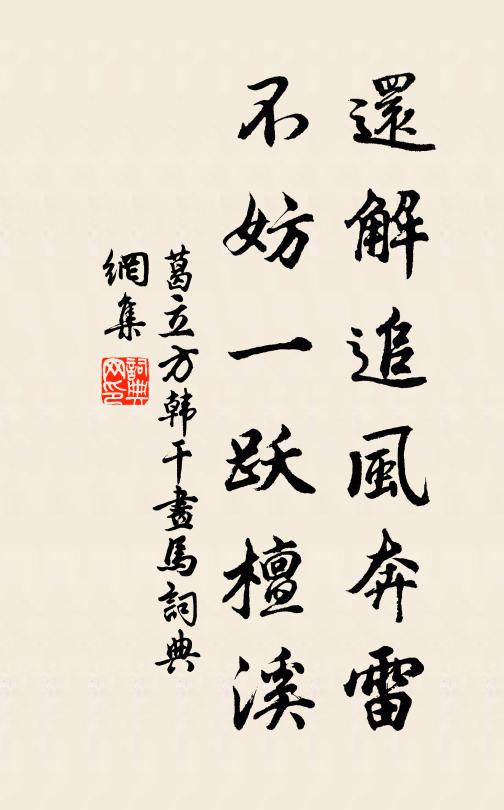 還解追風奔雷
不妨一跃檀溪
葛立方韩干畫馬詞典
網集
詞典
网印